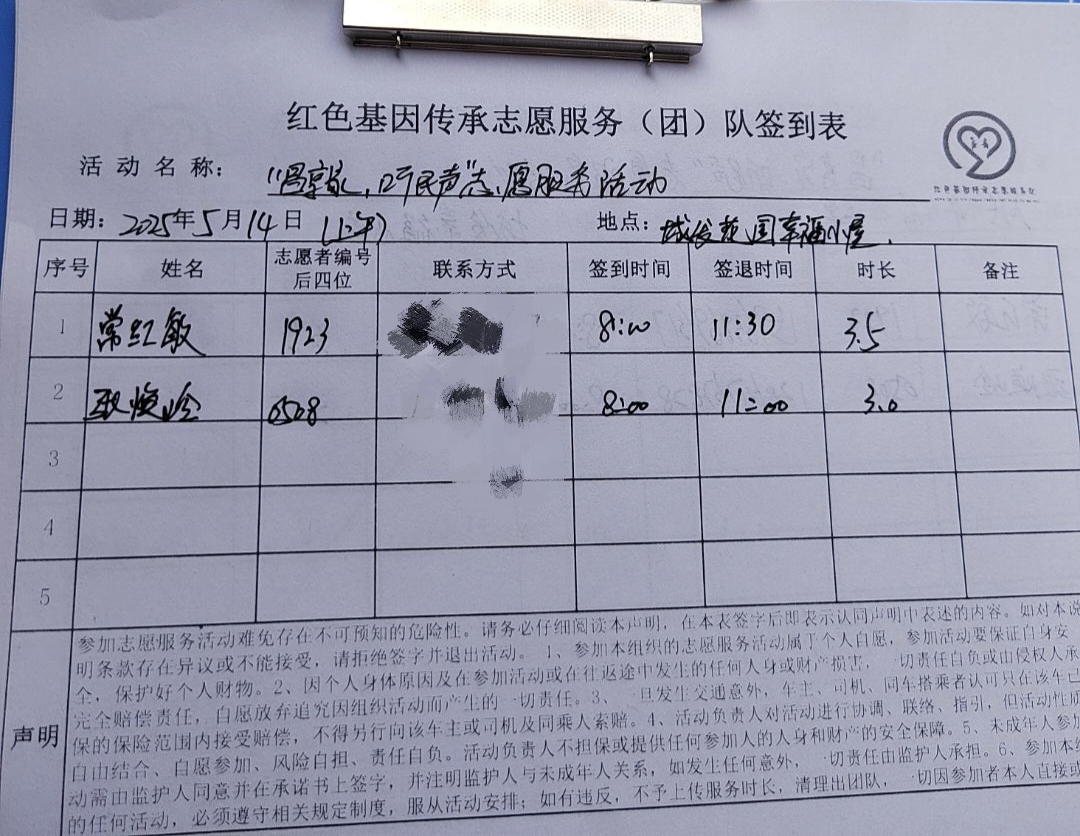 红色基因传承志愿服务（团）队签到表
活动名称： "冯家, 听民声"志愿服务活动
日期： 2025年5月14日 (上午) 地点： 城发花园幸福小屋.
序号 姓名 志愿者编号后四位 联系方式 签到时间 签退时间 时长 备注
1 常红敏 1923 8:00 11:30 3.5
2 耿焕玲 0508 8:00 11:00 3.0
3
4
5
声明
参加志愿服务活动难免存在不可预知的危险性。请务必仔细阅读本声明，在本表签字后即表示认同声明中表述的内容。如对本说
明条款存在异议或不能接受，请拒绝签字并退出活动。 1、参加本组织的志愿服务活动属于个人自愿，参加活动要保证自身安
全，保护好个人财物。2、因个人身体原因及在参加活动或在往返途中发生的任何人身或财产损害，一切责任自负或由侵权人承
完全赔偿责任，自愿放弃追究因组织活动而产生的一切责任。3、一旦发生交通意外，车主、司机、同车搭乘者认可只在该车已
保的保险范围内接受赔偿，不得另行向该车主或司机及同乘人索赔。4、活动负责人对活动进行协调、联络，指引，但活动性质
自由结合、自愿参加、风险自担、责任自负。活动负责人不担保或提供任何参加人的人身和财产的安全保障。5、未成年人参加
动需由监护人同意并在承诺书上签字，并注明监护人与未成年人关系，如发生任何意外，一切责任由监护人承担。6、参加本组
的任何活动，必须遵守相关规定制度，服从活动安排；如有违反，不予上传服务时长，清理出团队，一切因参加者本人直接或